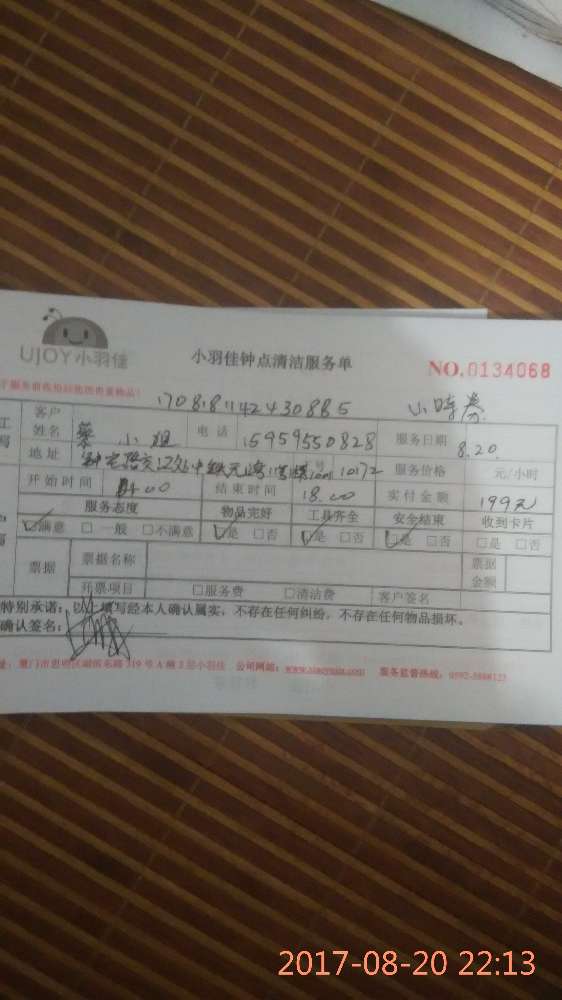 UJOY小羽佳
小羽佳钟点清洁服务单
NO.0134068
170818142430885
小时券
客户姓名 蔡小姐 电话 15959550828 服务日期 8.20
地址 10172 服务价格 元/小时
开始时间 14.00 结束时间 18.00 实付金额 199元
服务态度 物品完好 工具齐全 安全结束 收到卡片
满意 □一般 □不满意 是 □否 是 □否 是 □否 □是 □否
票据 票据名称 票据金额
开票项目 □服务费 □清洁费 客户签名
特别承诺：以上填写经本人确认属实，不存在任何纠纷，不存在任何物品损坏。
确认签名：
319号A栋2层小羽佳 公司网站： 服务监督热线：
2017-08-20 22:13